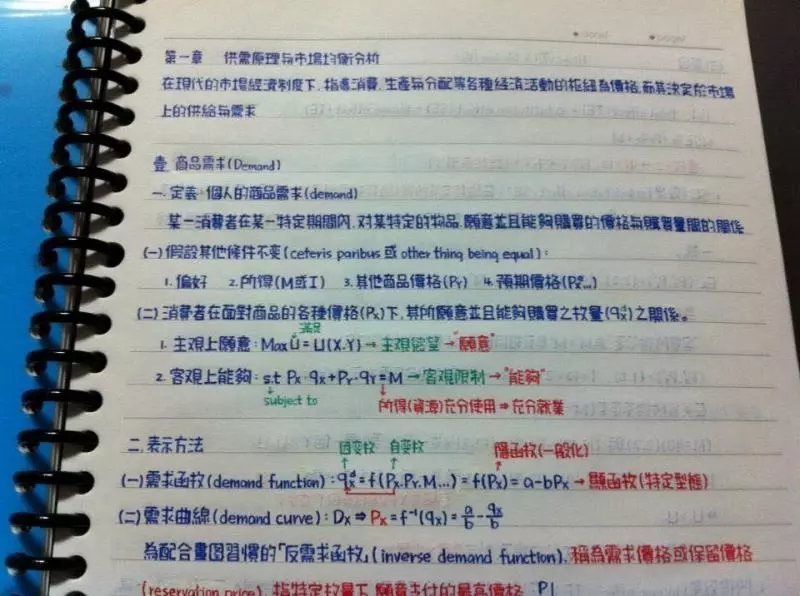 date: page:
第一章 供需原理与市場均衡分析
在現代的市場經濟制度下,指導消費,生產与分配等各種経濟活動的枢紐為價格,而其決定於市場
上的供給与需求
壹.商品需求(Demand)
一.定義-個人的商品需求(demand)
某一消費者在某一特定期間內,对某特定的物品,願意並且能夠購買的價格与購買量間的関係
(一)假設其他條件不变(ceteris paribus 或 other thing being equal):
1.偏好 2.所得(M或I) 3.其他商品價格(Py) 4.預期價格(Pxᵉ...)
(二)消費者在面對商品的各種價格(Px)下,其所願意並且能夠購買之数量(qxᵈ)之關係。
滿足
1.主观上願意:Max U = U(X.Y)→主观慾望→"願意"
2.客观上能夠:s.t Px·qx+Py·qy=M→客观限制→"能夠"
subject to 所得(資源)充分使用⇒充分就業
二.表示方法
因变数 自变数 隱函数(一般化)
(一)需求函数(demand function):qxᵈ=f(Px.Py.M...)=f(Px)=a-bPx→顯函数(特定型態)
(二)需求曲線(demand curve):Dx⇒Px=f⁻¹(qx)=a/b-qx/b
為配合畫図習慣的「反需求函数」(inverse demand function),稱為需求價格或保留價格
(reservation price),指特定数量下,願意支付的最高價格 P|